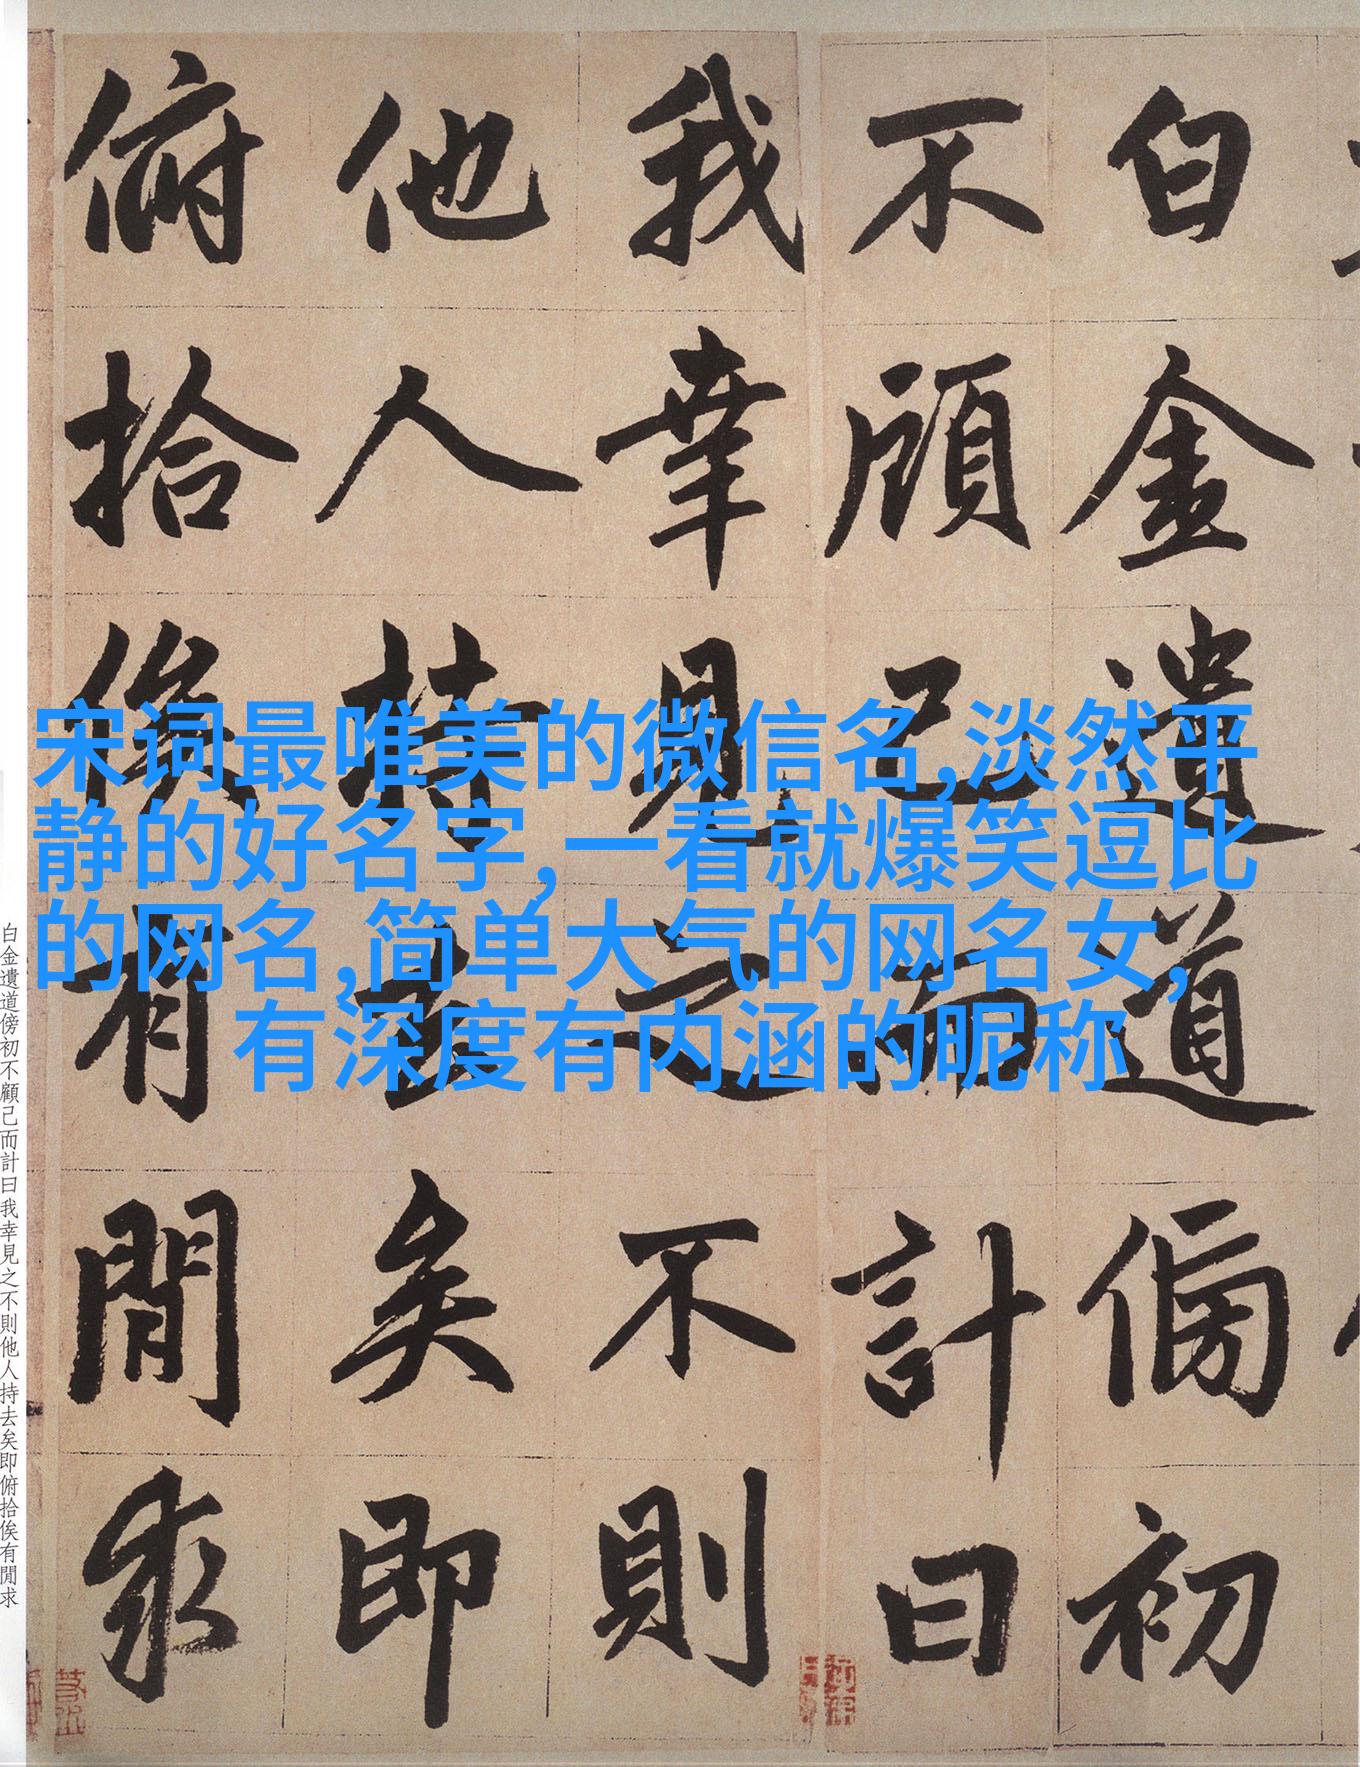 白金遺道傍初
不顧己而計曰
我幸見之不則
他人持去矣即
俯拾俟有閒求
宋词最唯美的微信名,淡然平
静的好名字,一看就爆笑逗比
的网名,简单大气的网名女,
有深度有内涵的昵称
白金遺道傍初不顧己而計曰我幸見之不則他人持去矣即俯拾俟有閒求